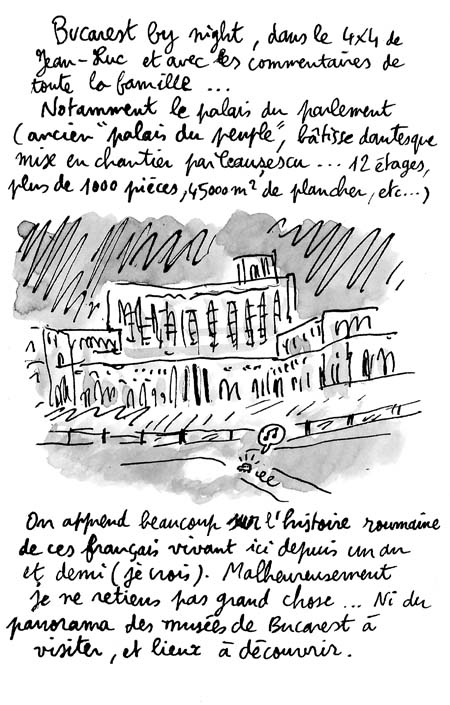 Bucarest by night, dans le 4x4 de
Jean-Luc et avec les commentaires de
toute la famille ...
Notamment le palais du parlement
(ancien "palais du peuple", bâtisse dantesque
mise en chantier par Ceauşescu ... 12 étages,
plus de 1000 pièces, 45000 m² de plancher, etc...)
On apprend beaucoup sur l'histoire roumaine
de ces français vivant ici depuis un an
et demi (je crois). Malheureusement
je ne retiens pas grand chose ... Ni du
panorama des musées de Bucarest à
visiter, et lieux à découvrir.